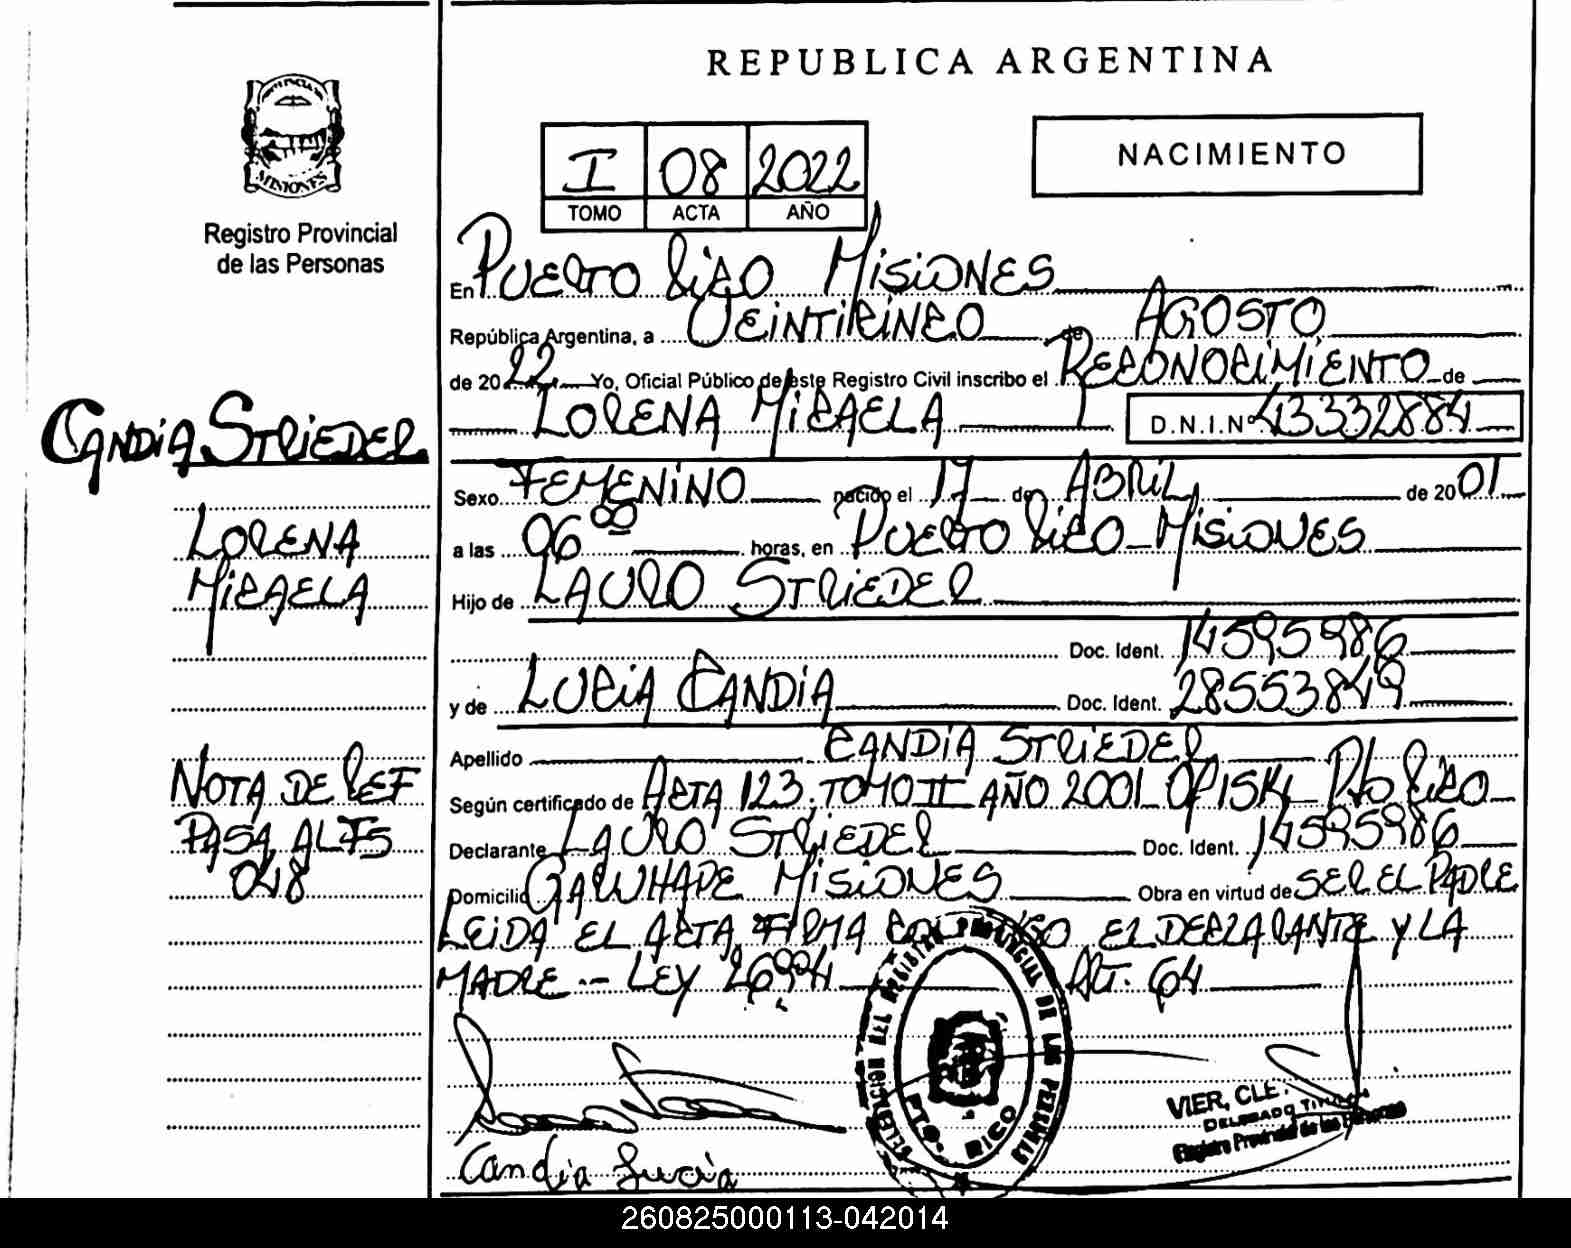 REPUBLICA ARGENTINA
MISIONES
Registro Provincial
de las Personas
I 08 2022
TOMO ACTA AÑO
NACIMIENTO
En PUERTO RICO MISIONES
República Argentina, a VEINTICINCO de AGOSTO
de 2022 Yo, Oficial Público de este Registro Civil inscribo el RECONOCIMIENTO de
LORENA MICAELA D.N.I.Nº 43332884
Sexo FEMENINO nacido el 17 de ABRIL de 2001
a las 06 00 horas, en PUERTO RICO - MISIONES
Hijo de LAURO STRIEDER
Doc. Ident. 14595986
y de LUCIA CANDIA Doc. Ident. 28553849
Apellido CANDIA STRIEDER
Según certificado de ACTA 123. TOMO II AÑO 2001 Pto RICO
Declarante LAURO STRIEDER Doc. Ident. 14595986
Domicilio GARUHAPE MISIONES Obra en virtud de SER EL PADRE
LEIDA EL ACTA FIRMA EL DECLARANTE Y LA
MADRE.- LEY 26994 ART. 64
CANDIA STRIEDER
LORENA
MICAELA
NOTA DE REF
PASA AL FS
048
DELEGACION DEL REGISTRO PROVINCIAL DE LAS PERSONAS
PTO. RICO
Candia Lucia
VIER, CLE
DELEGADO TITULAR
Registro Provincial de las Personas
260825000113-042014